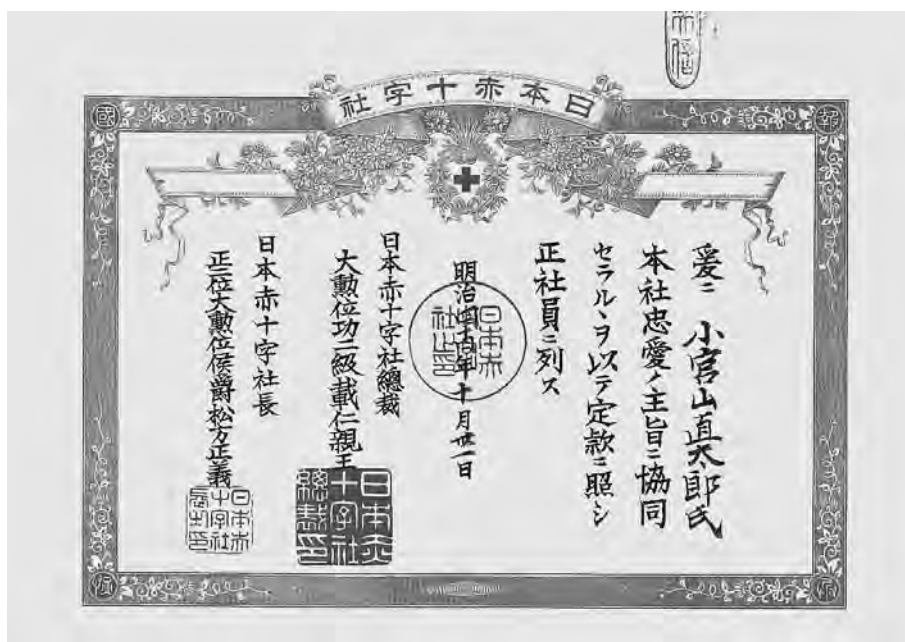 日本赤十字社
爰ニ 小宮山直太郎氏
本社忠愛ノ主旨ニ協同
セラルヽヲ以テ定款ニ照シ
正社員ニ列ス
明治四十四年十月廿一日
日本赤十字社總裁
大勲位功二級載仁親王
日本赤十字社總裁印
日本赤十字社長
正二位大勲位侯爵松方正義
日本赤十字社長之印
日本赤社之印
報
國
恤